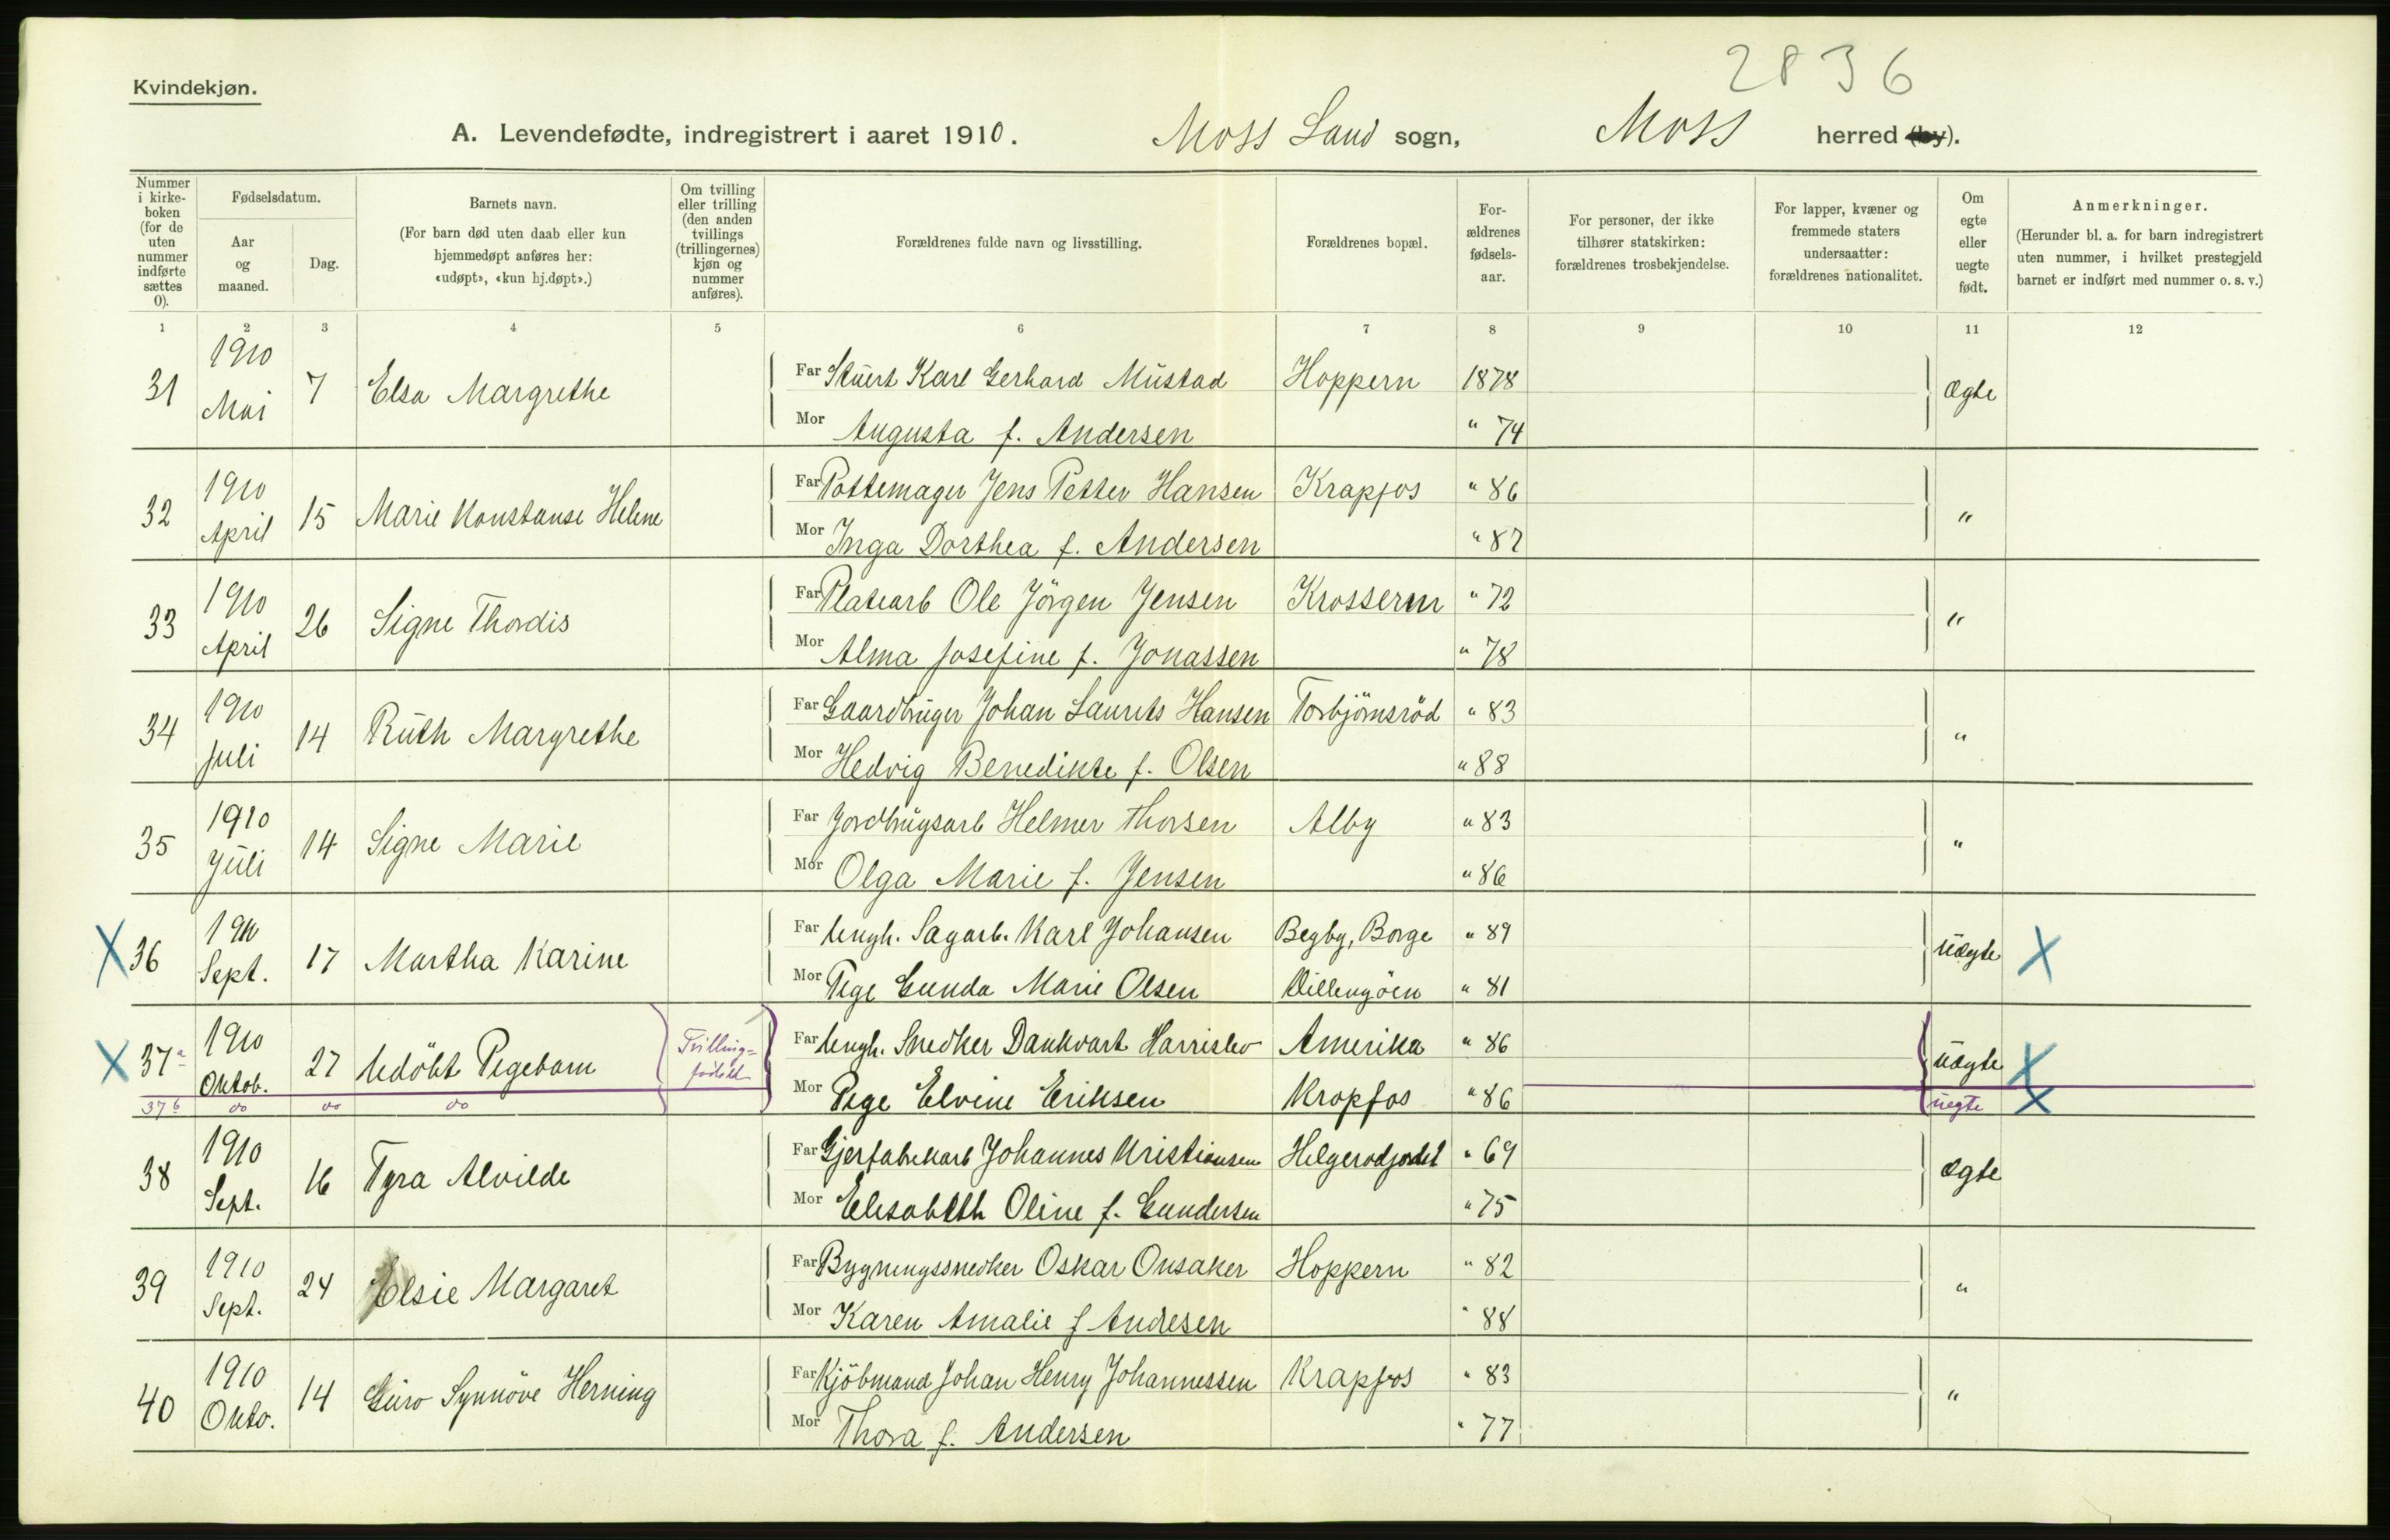 2836
Kvindekjøn.
A. Levendefødte, indregistrert i aaret 1910. Moss Land sogn, Moss herred (by).
Nummer i kirkeboken (for de uten nummer indførte sættes 0).
Fødselsdatum.
Aar og maaned.
Dag.
Barnets navn.
(For barn død uten daab eller kun hjemmedøpt anføres her: «udøpt», «kun hj.døpt».)
Om tvilling eller trilling (den anden tvillings (trillingernes) kjøn og nummer anføres).
Forældrenes fulde navn og livsstilling.
Forældrenes bopæl.
Forældrenes fødselsaar.
For personer, der ikke tilhører statskirken: forældrenes trosbekjendelse.
For lapper, kvæner og fremmede staters undersaatter: forældrenes nationalitet.
Om egte eller uegte født.
Anmerkninger.
(Herunder bl. a. for barn indregistrert uten nummer, i hvilket prestegjeld barnet er indført med nummer o. s. v.)
1 2 3 4 5 6 7 8 9 10 11 12
31 1910 Mai 7 Elsa Margrethe Far Stuert Karl Gerhard Mustad Hoppern 1878 Ægte
Mor Augusta f. Andersen " 74
32 1910 April 15 Marie Konstanse Helene Far Pottemager Jens Petter Hansen Krapfos " 86 "
Mor Inga Dorthea f. Andersen " 87
33 1910 April 26 Signe Thordis Far Platearb Ole Jörgen Jensen Krossern " 72 "
Mor Alma Josefine f. Jonassen " 78
34 1910 Juli 14 Ruth Margrethe Far Gaardbruger Johan Laurits Hansen Torbjörnsröd " 83 "
Mor Hedvig Benedikte f. Olsen " 88
35 1910 Juli 14 Signe Marie Far Jordbrugsarb Helmer Thorsen Alby " 83 "
Mor Olga Marie f. Jensen " 86
X 36 1910 Sept. 17 Martha Karine Far Ungk. Sagarb. Karl Johansen Begby, Borge " 89 Uægte X
Mor Pige Gunda Marie Olsen Dillengöen " 81
X 37a 1910 Oktob. 27 Udöbt Pigebarn Tvilling- Far Ungk. Snedker Dankvart Harrislev Amerika " 86 Uægte X
Mor Pige Elvine Eriksen Kropfos " 86
37b do do do uegte X
38 1910 Sept. 16 Tyra Alvilde Far Gjerfabrikarb Johannes Kristiansen Helgerodjordet " 69 Ægte
Mor Elisabeth Oline f. Gundersen " 75
39 1910 Sept. 24 Elsie Margaret Far Bygningssnedker Oskar Onsaker Hoppern " 82 "
Mor Karen Amalie f Andresen " 88
40 1910 Okto. 14 Guro Synnöve Herning Far Kjöbmand Johan Henry Johannessen Krapfos " 83 "
Mor Thora f. Andersen " 77